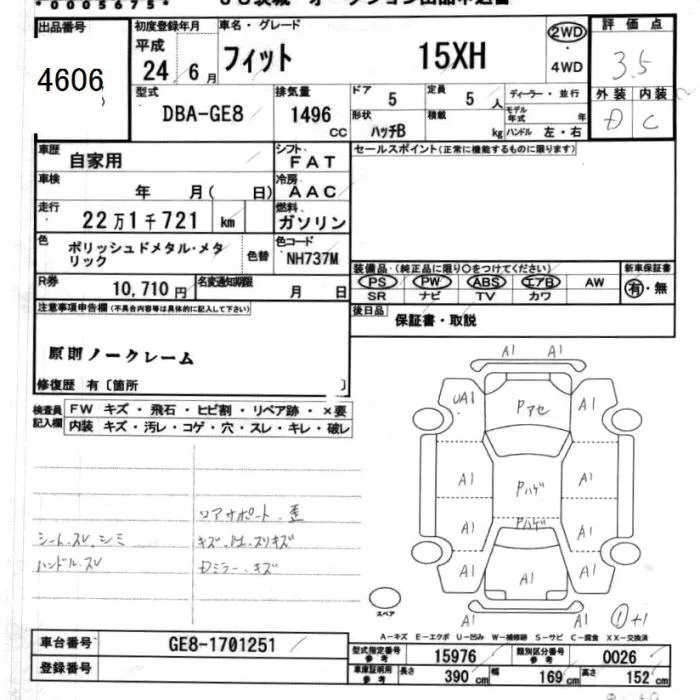 *0005675*
出品番号 初度登録年月 車名・グレード 評価点
4606
平成 24 年 6 月 フィット 15XH 2WD ・ 4WD 3.5
型式 排気量 ドア 定員 ディーラー・並行 外装 内装
DBA-GE8 1496 CC 5 5人 モデル年式 年 D C
形状 ハッチB 積載 kg ハンドル 左・右
車歴 自家用 シフト FAT セールスポイント(正常に機能するものに限ります)
車検 年 月( 日) 冷房 AAC
走行 22万1千721 km 燃料 ガソリン
色 ポリッシュドメタル・メタリック 色替 色コード NH737M
装備品 (純正品に限り○をつけてください) 新車保証書
R券 10,710円 名変通知期限 月 日
PS PW ABS エアB AW 有・無
SR ナビ TV カワ
注意事項申告欄(不具合内容等は具体的に記入して下さい)
後日品 保証書・取説
原則ノークレーム
修復歴 有〔箇所 〕
検査員記入欄 FW キズ・飛石・ヒビ割・リペア跡・×要
内装 キズ・汚レ・コゲ・穴・スレ・キレ・破レ
A1 A1
UA1 Pアセ A1
A1 Pハゲ A1
A1 Pハゲ A1
A1 A1 A1
A1 A1
ロアサポート 歪
シート スレ シミ
ハンドル スレ
スペア
①+1
A-キズ E-エクボ U-凹み W-補修跡 S-サビ C-腐食 XX-交換済
車台番号 GE8-1701251
登録番号
型式指定番号 参考 15976 類別区分番号 参考 0026
車庫証明用 参考 長さ 390 cm 幅 169 cm 高さ 152 cm